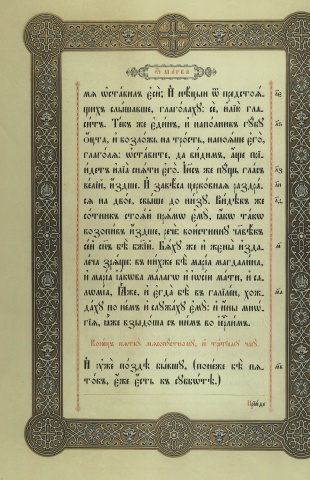 Ѿ МАРКА
мѧ ѡставилъ є҆сѝ; И҆ нѣ́цыи ѿ предстоѧ́-
щихъ слы́шавше, глаго́лахꙋ: сѐ, и҆лію̀ гла-
си́тъ. Те́къ же є҆ди́нъ, и҆ напо́лнивъ гꙋ́бꙋ
ѻ҆́цта, и҆ возло́жь на тро́сть, напаѧ́ше є҆го̀,
глаго́лѧ: ѡ҆ста́вите, да ви́димъ, а҆́ще прі-
и́детъ и҆лїа̀ снѧ́ти є҆го̀. І҆и҃съ же пꙋ́щь гла́съ
ве́лїй, и҆́здше. И҆ завѣ́са церко́внаѧ раздра́-
сѧ на дво́е, свы́ше до ни́зꙋ. Ви́дѣвъ же
со́тникъ стоѧ́й прѧ́мѡ є҆мꙋ̀, ꙗ҆́кѡ та́кѡ
возопи́въ и҆́здше, речѐ: вои́стиннꙋ человѣ́къ
се́й сн҃ъ бѣ̀ бж҃їй. Бѧ́хꙋ же и҆ жєны̀ и҆зда-
ле́ча зрѧ́щѧ: въ ни́хже бѣ̀ марі́а магдали́на,
и҆ марі́а і҆а́кѡва ма́лагѡ и҆ і҆ѡсі́и ма́ти, и҆ са-
лѡмі́а. И҆̀же, и҆ є҆гда̀ бѣ̀ въ галїле́и, хож-
да́хꙋ по не́мъ и҆ слꙋжа́хꙋ є҆мꙋ̀: и҆ и҆́ны мнѡ́-
гїѧ, ꙗ҆̀же взыдо́ша съ ни́мъ во і҆ерⷭ҇ли́мъ.
Коне́цъ пѧткꙋ̀ мѧсопꙋ́стномꙋ, и҆ тре́тїемꙋ часꙋ̀
И҆ ᲂу҆жѐ по́здѣ бы́вшꙋ, (поне́же бѣ̀ пѧ-
то́къ, є҆́же є҆́сть къ сꙋббѡ́тѣ.)
Прїи́де